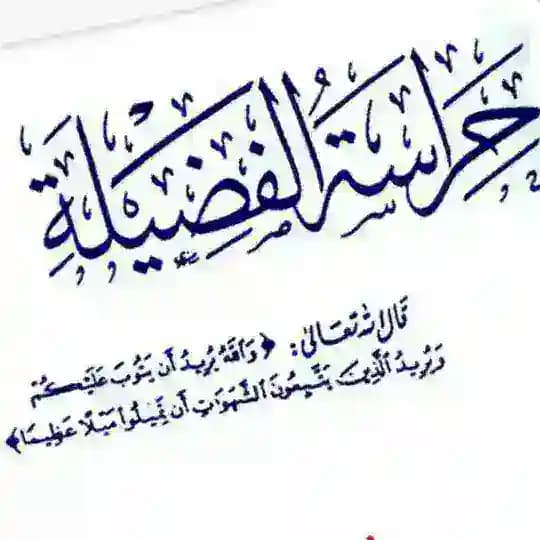 حِرَاسَةُ الفَضِيلَةِ
قَالَ اللهُ تَعَالَىٰ: ﴿وَاللَّهُ يُرِيدُ أَن يَتُوبَ عَلَيْكُمْ
وَيُرِيدُ الَّذِينَ يَتَّبِعُونَ الشَّهَوَاتِ أَن تَمِيلُوا مَيْلًا عَظِيمًا﴾